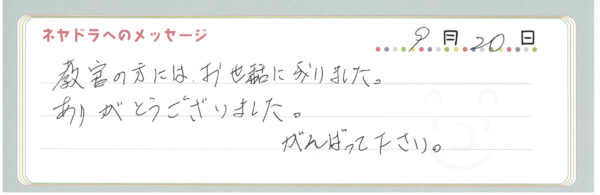 ネヤドラへのメッセージ
9月20日
教官の方には、お世話になりました。
ありがとうございました。
がんばって下さい。